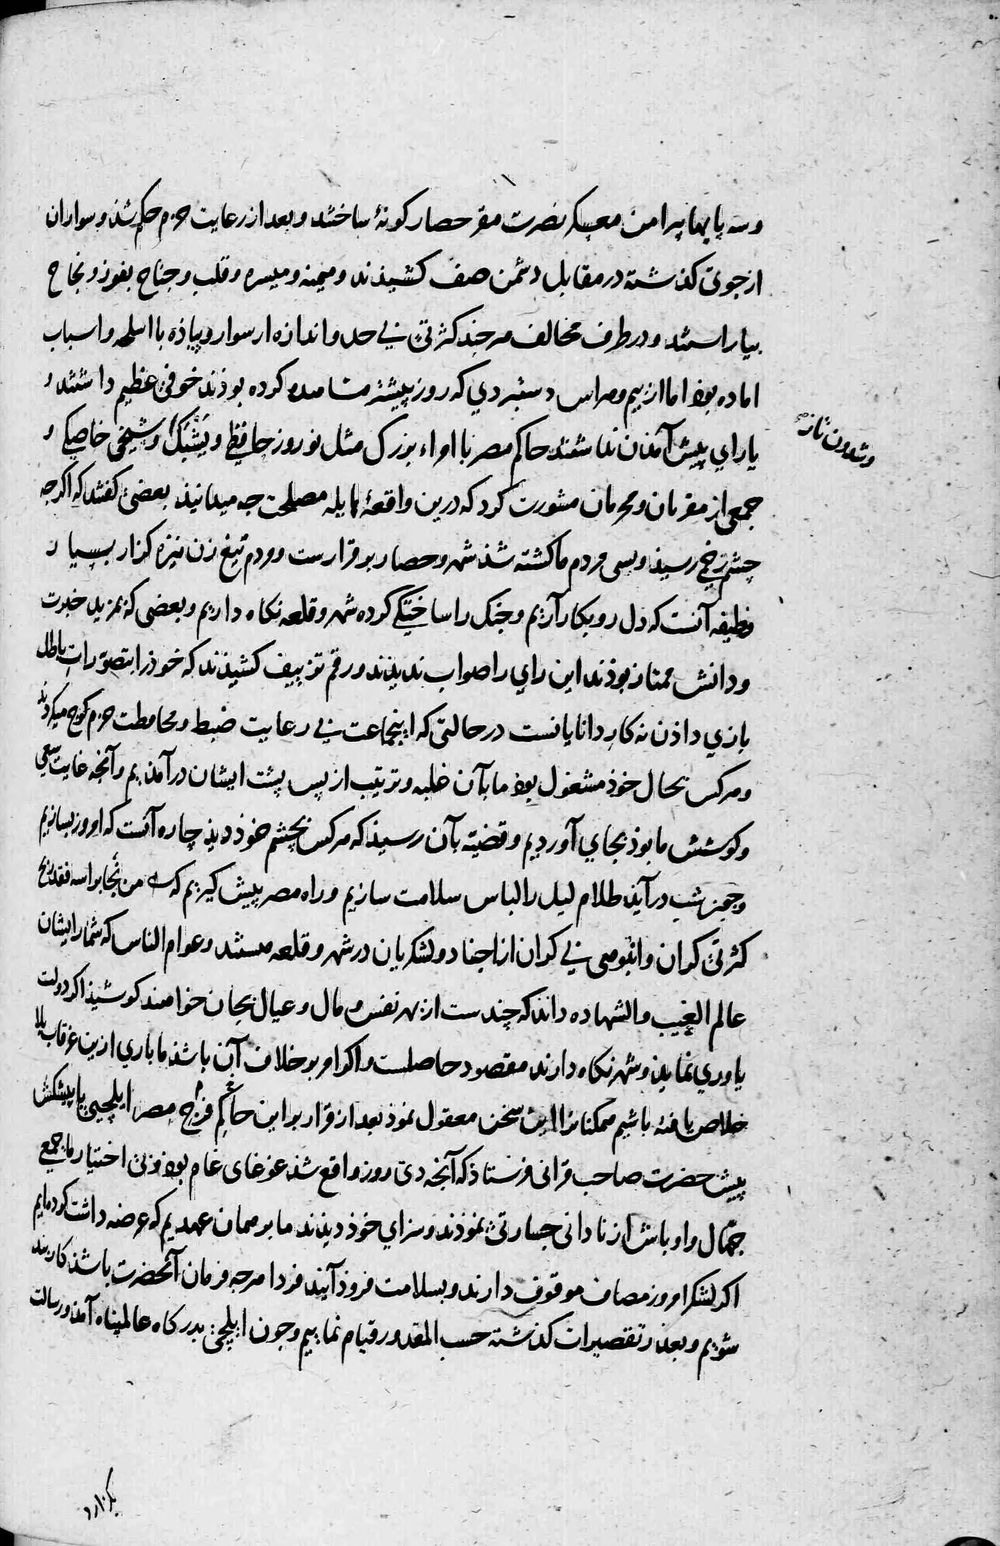 وسه پایها پیرامن معسکر نصرت مقر حصار کونهٔ ساختند و بعد از رعایت حزم حکم شد و سواران
از جوی کذشته در مقابل دشمن صف کشیذند و میمنه و میسره و قلب و جناح بفوز و نجاح
بیاراستند و در طرف مخالف هرچند کثرتی بی حد و اندازه از سوار و پیاذه با اسلحه و اسباب
اماده بوذ اما از بیم و هراس دستبردي که روز پیشتر مشاهده کرده بوذند خوفی عظیم داشتند و
یاراي پیش آمذن نداشتند حاکم مصر با امراء بزرک مثل نوروز حافظي و یشبک و شیخی خاصکي و
وشدون تاز
جمعی از مقربان و محرمان مشورت کرد که درین واقعهٔ هایله مصلحت چه میدانیذ بعضی کفتند که اکرچه
چشم زخمی رسیذ و بسی مردم ما کشته شذ شهر و حصار برقرارست و مردم تیغ زن نیزه کذار بسیار
وظیفه آنست که دل رو بکار آریم و جنک را ساختکي کرده شهر و قلعه نکاه داریم و بعضی که بمزید خبرت
و دانش ممتاز بوذند این راي را صواب ندیذند و رقم تزییف کشیذند که خوذ را بتصورات باطل
بازي داذن نه کار دانایانست در حالتی که اینجماعت بی رعایت ضبط و محافظت حزم کوچ میکردند
و هرکس بحال خوذ مشغول بوذ ما بآن غلبه و ترتیب از پس پشت ایشان درآمذیم و آنچه غایت سعي
و کوشش ما بوذ بجاي آوردیم و قضیه بآن رسیذ که هرکس بچشم خوذ دیذ چاره آنست که امروز بسازیم
و چون شب درآیذ ظلام لیل را لباس سلامت سازیم و راه مصر پیش کیریم که من نجا براسه فقد ربح
کثرتی کران و انبوهی بی کران از اجناد و لشکریان در شهر و قلعه هستند و عوام الناس که شمار ایشان
عالم الغیب والشهاده داند که چندست از بهر نفس و مال و عیال بجان خواهند کوشیذ اکر دولت
یاوري نمایذ و شهر نکاه دارند مقصود حاصلست و اکر امر بر خلاف آن باشذ ما باري ازین غرقاب بلا
خلاص یافته باشیم همکنانرا این سخن معقول نموذ بعد از قرار برین حاکم فرج مصر ایلچیی با پیشکش
پیش حضرت صاحب قرانی فرستاذ که آنچه دی روز واقع شذ غوغای عام بوذ و بی اختیار ما جمعي
جهال و اوباش از نادانی جسارتی نموذند و سزاي خوذ دیذند ما بر همان عهدیم که عرضه داشت کرده‌ایم
اکر لشکر امروز مصاف موقوف دارند و بسلامت فروذ آیند فردا هرچه فرمان آنحضرت باشذ کاربند
شویم و بعذر تقصیرات کذشته حسب المقدور قیام نماییم و چون ایلچی بدرکاه عالمپناه آمذ و رسالت
بکزارد